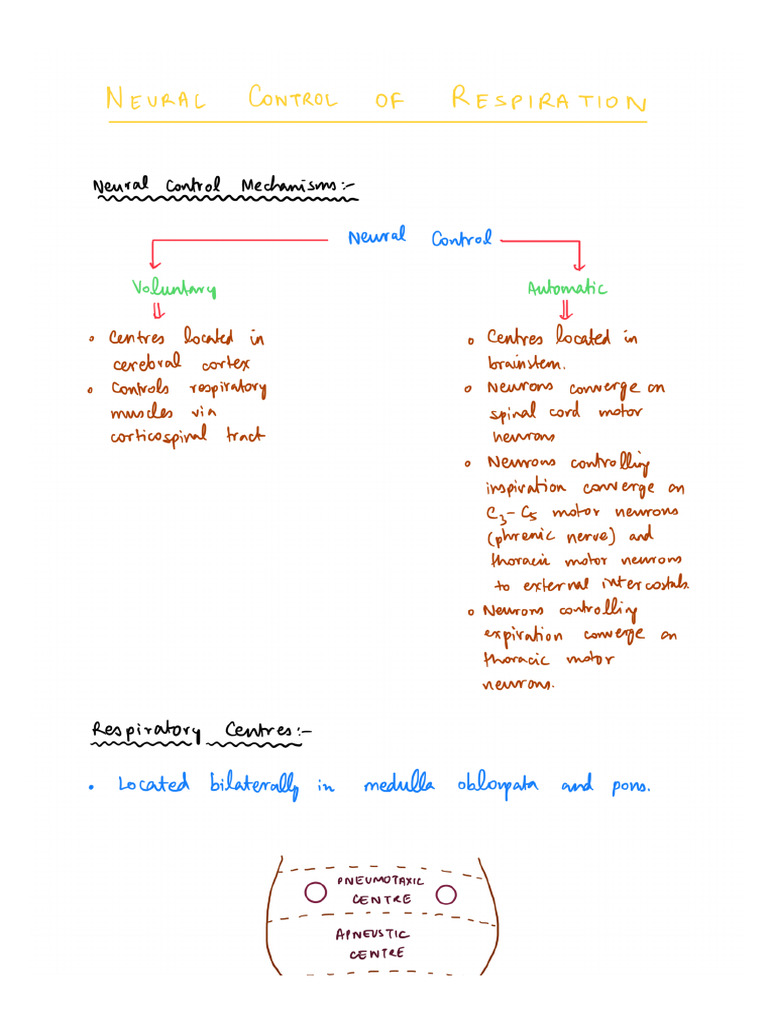 NEURAL CONTROL OF RESPIRATION
Neural Control Mechanisms:-
Neural Control
Voluntary
• Centres located in
cerebral cortex
• Controls respiratory
muscles via
corticospinal tract
Automatic
• Centres located in
brainstem.
• Neurons converge on
spinal cord motor
neurons
• Neurons controlling
inspiration converge on
C3-C5 motor neurons
(phrenic nerve) and
thoracic motor neurons
to external intercostals.
• Neurons controlling
expiration converge on
thoracic motor
neurons.
Respiratory Centres:-
• Located bilaterally in medulla oblongata and pons.
PNEUMOTAXIC
CENTRE
APNEUSTIC
CENTRE